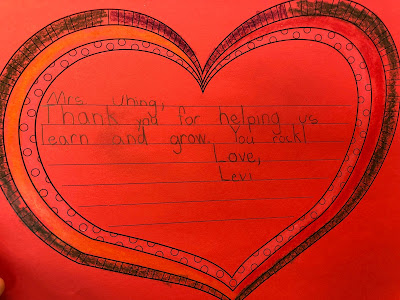 Mrs. Uhing,
Thank you for helping us
learn and grow. You rock!
Love,
Levi